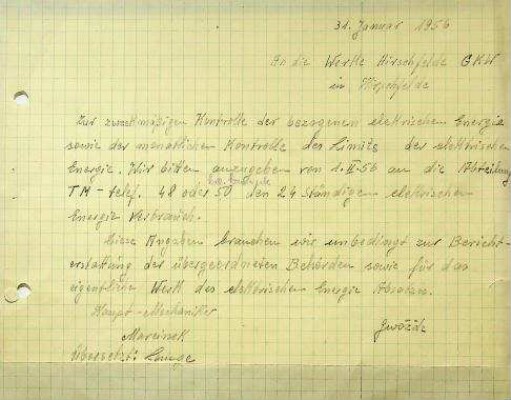 31. Januar 1956
An die Werke Hirschfelde GKW
in Hirschfelde
Zur zweckmäßigen Kontrolle der bezogenen elektrischen Energie
sowie der monatlichen Kontrolle des Limits der elektrischen
Energie. Wir bitten anzugeben von 1. II. 56 an die Abteilung
TM - telef. 48 oder 50 den 24 ständigen elektrischen
Energie Verbrauch.
Diese Angaben brauchen wir unbedingt zur Bericht-
erstattung der übergeordneten Behörden sowie für das
eigentlichen Werk des elektrischen Energie
Haupt-Mechaniker
Marcinek
Übersetzt: